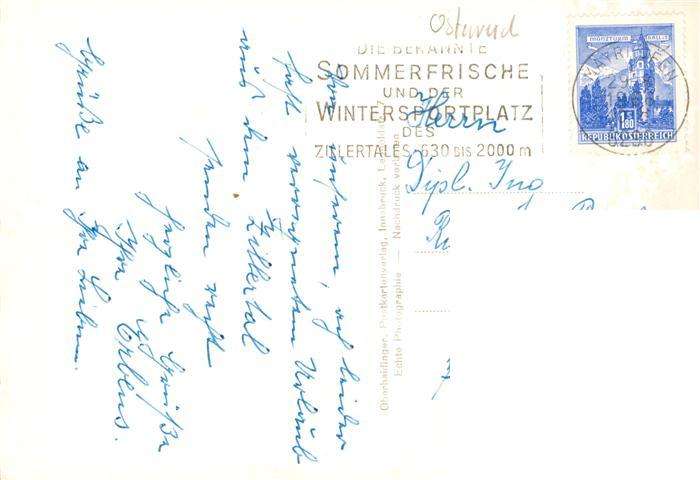 Osterwd
DIE BEKANNTE
SOMMERFRISCHE
UND DER
WINTERSPORTPLATZ
DES
ZILLERTALES · 630 BIS 2000 m
MÜNZTURM HALL i. T.
MAYRHOFEN
S 1.80
REPUBLIK ÖSTERREICH
Herrn
Dipl. Ing
Oberhaidinger, Postkartenverlag, Innsbruck,
Echte Photographie — Nachdruck verboten
Von unserem, auf leider
fast verregneten Urlaub
aus dem Zillertal
senden recht
herzliche Grüße
Ihre
Grüße an Ihre Lieben.